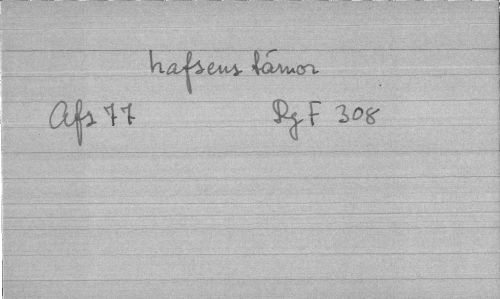 hafsens tärnor
Afs 77 Rg F 308